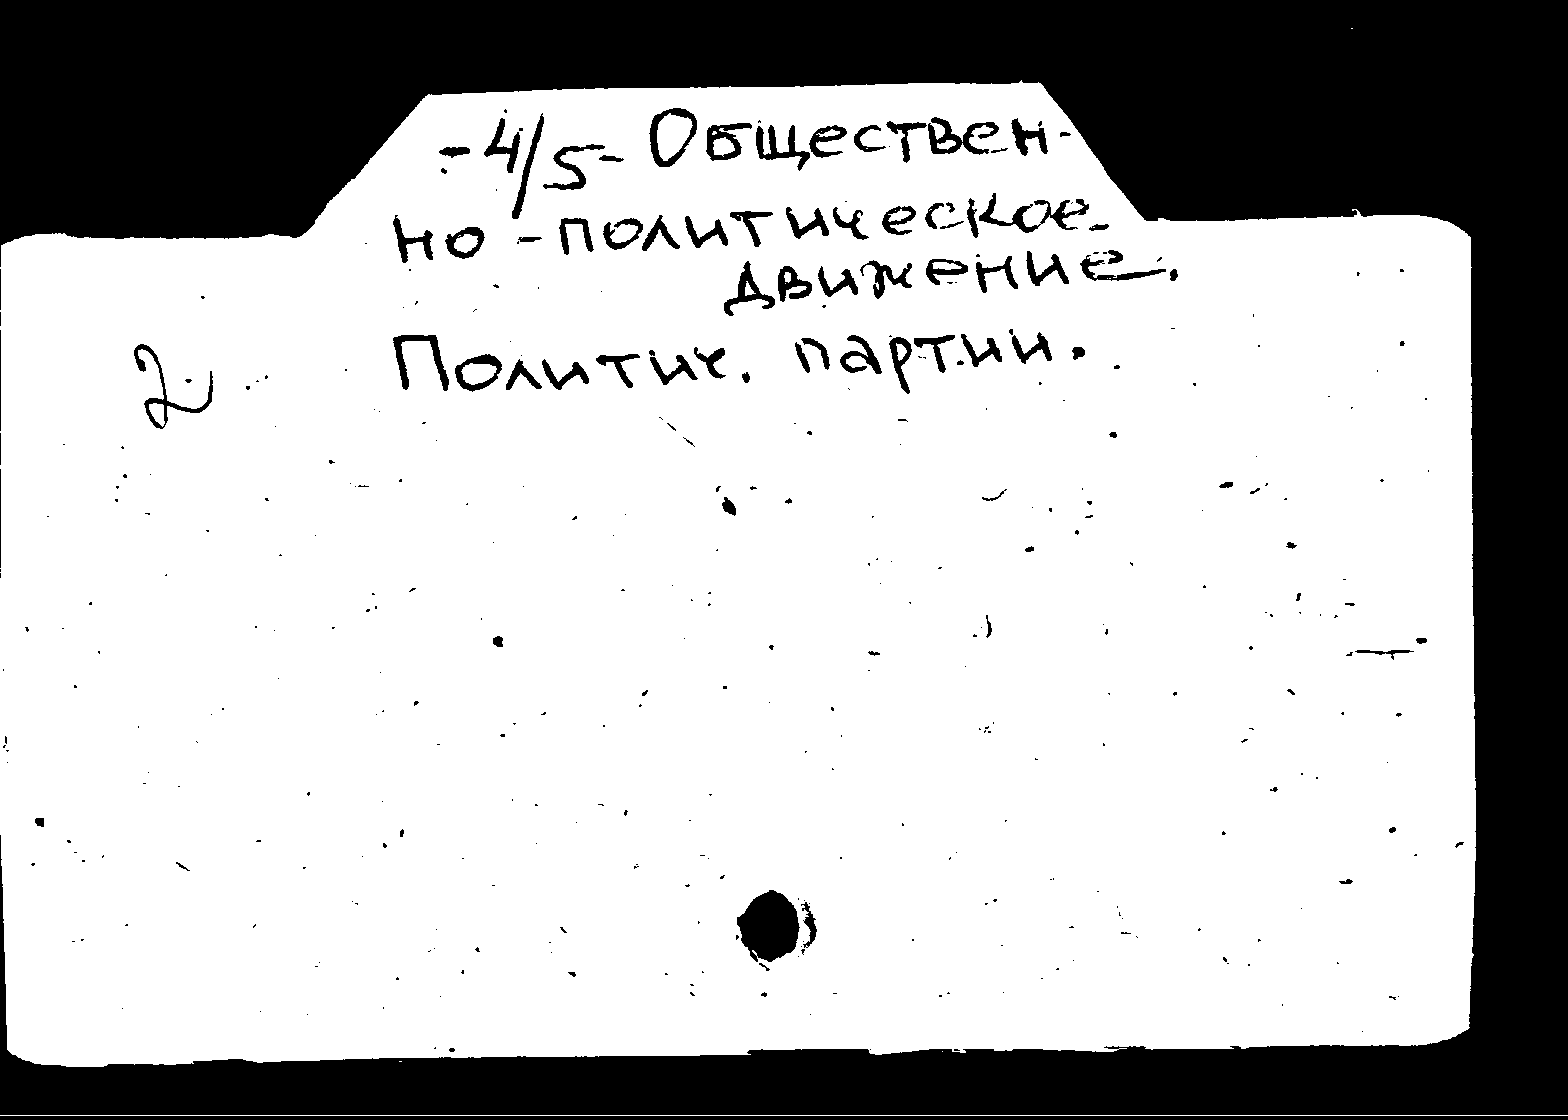 -4/5- Обществен-
но-политическое
движение.
2
Политич. партии.